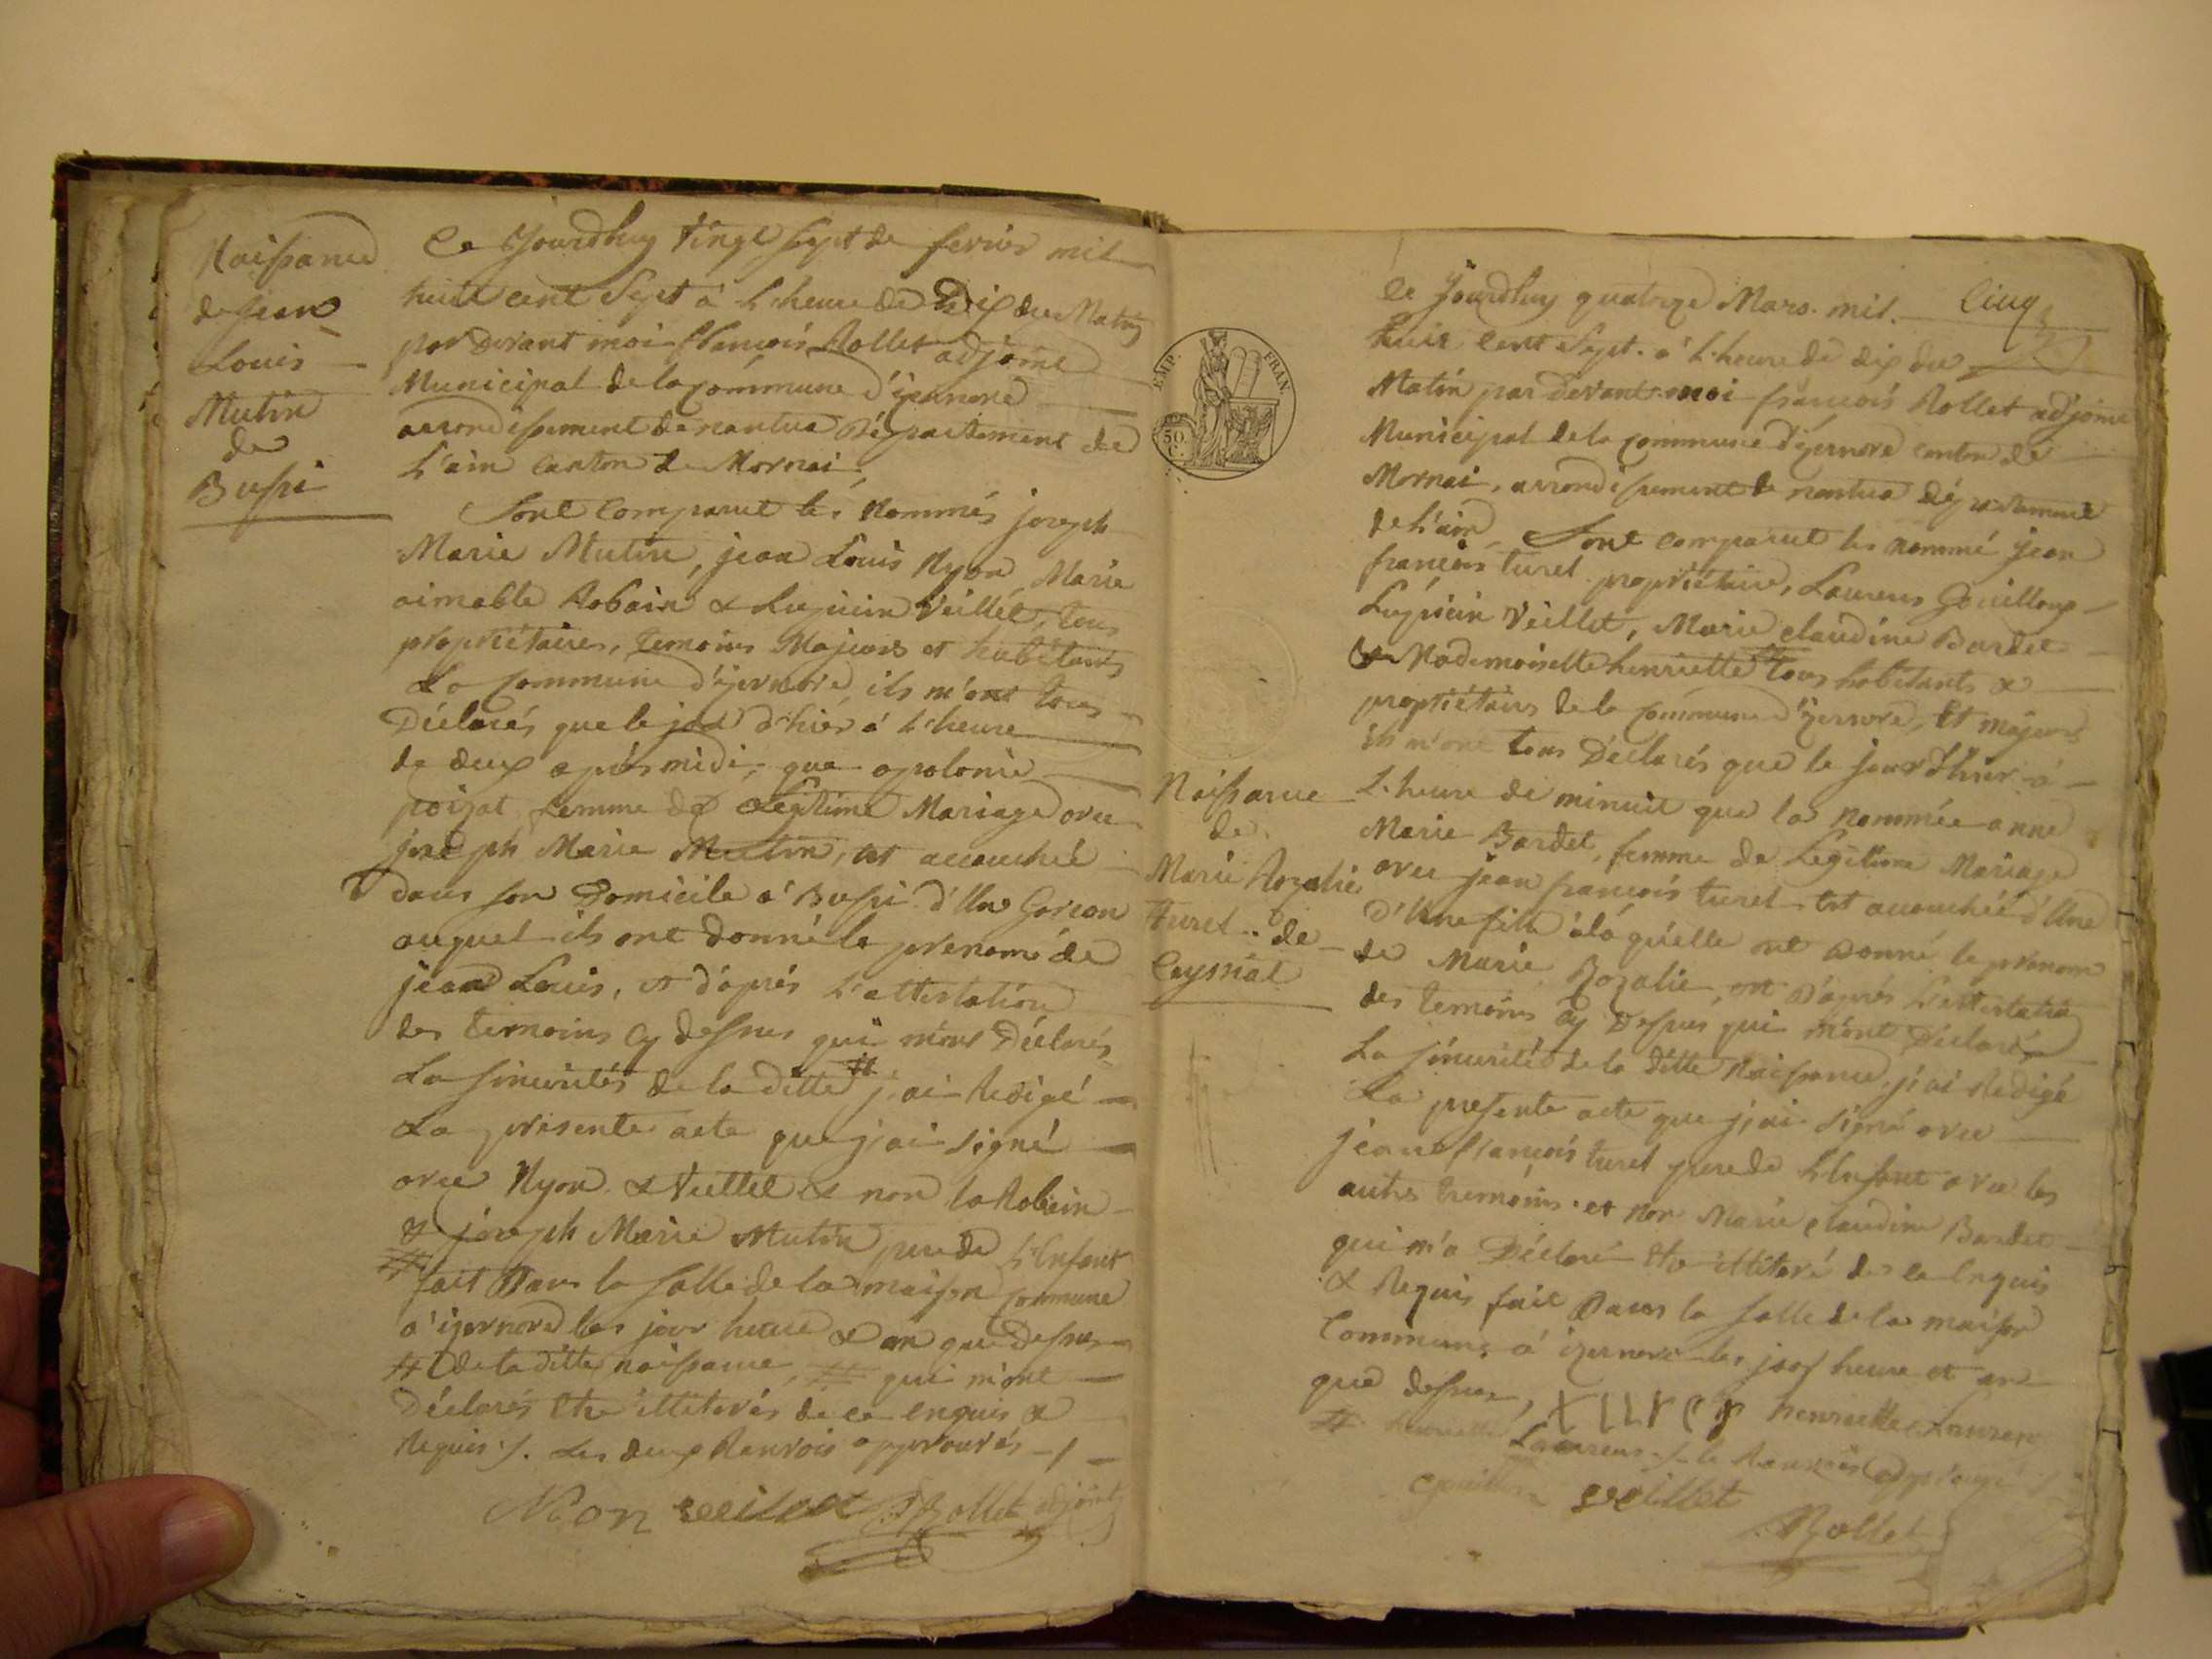 Naissance
de jean
Louis
Mutin
de
Bussi
Ce Jourdhuy vingt sept de fevrier mil
huit cent sept à l'heure de dix du Matin
par devant moi françois Rollet adjoint
Municipal de la commune d'izernore
arrondissement de nantua Département de
L'ain canton de Mornai,
Sont comparut les Nommés joseph
Marie Mutin, jean Louis Nyon, Marie
aimable Robain & Lupicin Veillet, tous
propriétaires, temoins Majeurs et habitants
La Commune d'izernore, ils m'ont tous
Déclarés que le jour d'hier à l'heure
de deux après midi, que apolonie
poizat femme de Légitime Mariage avec
joseph Marie Mutin, est accouchée
dans son Domicile à Bussi d'Un Garcon
auquel ils ont donné le prenom de
jean Louis, et d'après l'attestation
des temoins cy dessus qui m'ont Déclarés
La sincerités de la ditte # j'ai Redigé
La presente acte que j'ai signé
avec Nyon & Veillet & non la Robain
& joseph Marie Mutin pere de L'Enfant
# fait Dans la salle de la maison commune
à izernore les jour heure & an que Dessus
# de la ditte naissance, # qui m'ont
Déclarés Etre illiterés de ce enquis &
Requis ./. Les deux Renvois approuvés -/-
Nion veillet Rollet adjoint
EMP. FRAN.
50
C.
Cinq
Ce Jourdhuy quatorze Mars mil
huit Cent Sept à l'heure de dix du
Matin par devant moi françois Rollet adjoint
Municipal de la commune d'izernore canton de
Mornai, arrondissement de nantua département
de L'ain, Sont comparut les nommé jean
françois turel propriétaire, Laurens Gouilloux
Lupicin Veillet, Marie claudine Bardet
& Mademoiselle henriette # tous habitants &
propriétaires de la Commune d'izernore, Et majeurs
ils m'ont tous Déclarés que le jour d'hier à
L'heure de minuit que la nommée anne
Marie Bardet, femme de Légitime Mariage
avec jean françois turel est accouchée d'Une
d'Une fille à la quelle ont donné le prenom
de Marie Rozalie, et D'après L'attestation
des temoins cy Dessus qui m'ont Declarés
La sincerité de la ditte Naissance, j'ai Redigé
La presente acte que j'ai signé avec
jean françois turel pere de L'Enfant avec les
autres temoins et non Marie claudine Bardet
qui m'a Déclaré Etre illiteré de ce Enquis
& Requis fait Dans la salle de la maison
Commune à izernore les jour heure et an
que dessus, henriette Laurens
# henriette Laurens ./. le Renvois approuvé
gouilloux veillet
Rollet
Naissance
de
Marie Rozalie
turel de
Ceyssiat